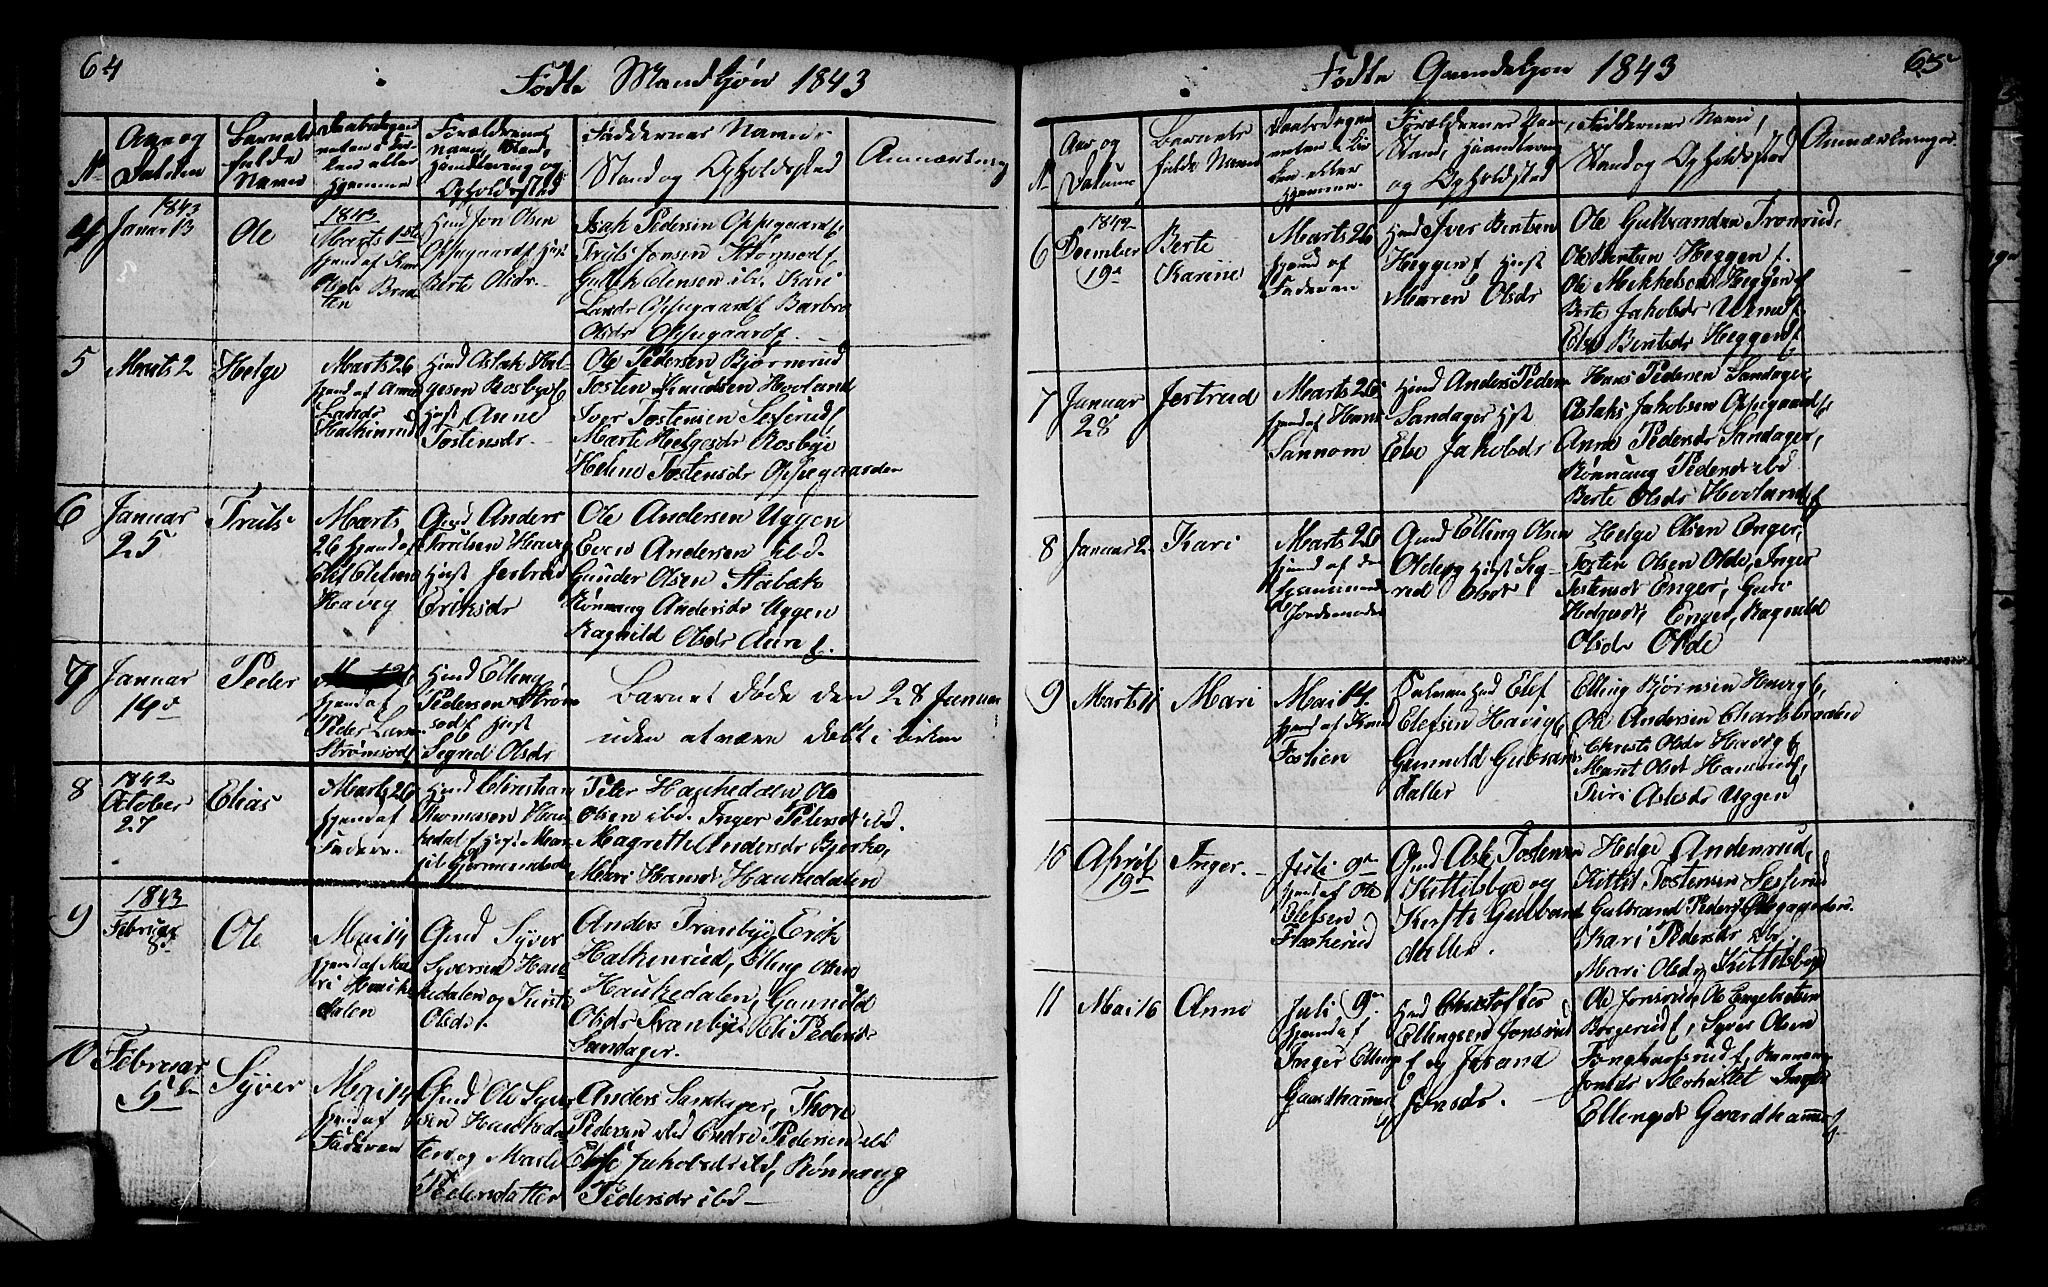 64
Fødte Mandkjøn 1843
No
Aar og
Datum
Barnets
fulde
Navn
Daabsdagen
enten i Kir-
ken eller
hjemme
Forældrenes
Navn, Stand,
Haandtering og
Opholdssted
Faddernes Navne
Stand og Opholdssted
Anmærkning
4
1843
Januar 13
Ole
1843
Marts 1ste
hjemd af
Olsdr Braa-
ten
Hmd Jon Olsen
Oppegaard Hust
Berte Olsdr.
Isak Pedersen Oppegaard
Truls Jonsen Strømsod
Gulik Edensen ib. Kari
Larsdr Oppegaard Barbro
Olsdr Oppegaard
5
Marts 2
Helge
Marts 26
hjemd af Anne
Larsdr
Halkinrud
Hmd Aslak Hel-
gesen Rosbye
Hust Anne
Tostensdr.
Ole Pedersen Bjørnerud
Tosten Knudsen Hovland
Iver Tostensen Seserud
Marte Helgesdr Rosbye
Helene Tostensdr Oppegaarden
6
Januar
25
Truls
Marts
26 hjemd af
Elef Elefsen
Havig
Gmd Anders
Trulsen Havig
Hust Jertrud
Eriksdr
Ole Andersen Uggen
Even Andersen ibd.
Gunder Olsen Stabæk
Rønnaug Andersdr Uggen
Ragnild Olsdr Aure
7
Januar
14de
Peder
hjemd af
Peder Lars
Strømsod
Hmd Elling
Pedersen Strøm-
sod Hust
Segred Olsdr
Barnet døde den 28 Januar
uden at være døbt i kirken
8
1842
October
27
Elias
Marts 26
hjemd af
Faderen.
Hmd Christian
Thomasen Hau-
kedal Hust Mar-
Peter Haukedalen Ole
Olsen ibd. Inger Pedersdr ibd.
Magrette Andersdr Bjerke,
Mari Hansdr Haukedalen
9
1843
Februar
8de
Ole
Mai 14
hjemd af Ma-
ri Hauke-
dalen
Gmd Syver
Syversen Hau-
kedalen og Kirsti
Olsdr.
Anders Tranbye, Erik
Halkenrud, Elling Olsen
Haukedalen, Gunnild
Olsdr Tranbye Eli Pedersdr
Sandager.
10
Februar
5te
Syver
Mai 14
hjemd af
Faderen
Gmd Ole Syver
sen Haukeda-
len og Marte
Pedersdatter
Anders Sandager, Thore
Pedersen ibd Endre Pedersen ibd
Else Jakobsdr ibd, Rønnaug
Pedersdr ibd
65
Fødte Qvindekjøn 1843
No
Aar og
Datum
Barnets
fulde Navn
Daabsdagen
enten i Kir-
ken eller
hjemme.
Forældrenes Navn,
Stand, Haandtering
og Opholdssted
Faddernes Navn,
Stand og Opholdssted
Anmærkninger
6
1842
December
19de
Berte
Karine
Marts 26
hjemd af
Faderen
Hmd Iver Bentsen
Heggen Hust
Maren Olsdr
Ole Gulbrandsen Tronrud,
Ole Bentsen Heggen
Ole Mikkelsen Heggen
Berte Jakobsdr
Else Bentsdr Heggen
7
Januar
28
Jertrud
Marts 26
hjemd af Hans
Sannom
Hmd Anders Peders
Sandager Hust
Else Jakobsdr
Hans Pedersen Sandager,
Aslak Jakobsen Oppegaard
Anne Pedersdr Sandager,
Rønnaug Pedersdr ibd
Berte Olsdr Hovland
8
Januar 2
Kari
Marts 26
hjemd af
Jordemoder
Gmd Elling Olsen
Olde og Hust Sig-
red Olsdr
Helge Olsen Enger,
Tosten Olsen Olde, Inger
Tostensdr Enger, Guri
Helgesdr Enger, Ragnild
Olsdr Olde
9
Marts 11
Mari
Mai 14.
hjemd af
Tostien
Elef
Elefsen Havig
Gunnild Gulbrans
datter
Elling Bjørnsen Havig,
Ole Andersen
Christi Olsdr Havig
Marit Olsdr
Turi Aslesdr Uggen
10
April
19de
Inger.
Juli 9de
hjemd af Ole
Elefsen
Flaskerud
Gmd Ask Tostensen
Kittilsbye og
Kirsti Gulbrand
datter.
Helge Anderrud,
Kittil Tostensen Seserud
Gulbrand Pedersen
Kari Pedersdr ibd.
Mari Olsdr Kittilsbye
11
Mai 16
Anne
Juli 9de
hjemd af
Inger Elling
Gaardhammer
Hmd Christoffer
Ellingsen Jonsrud
og Jørand
Jonsdr.
Ole Jonsrud Ole Engebretsen
Borgerud, Syver Olsen
Jonsdr Inger
Ellingsdr Gaardhammer